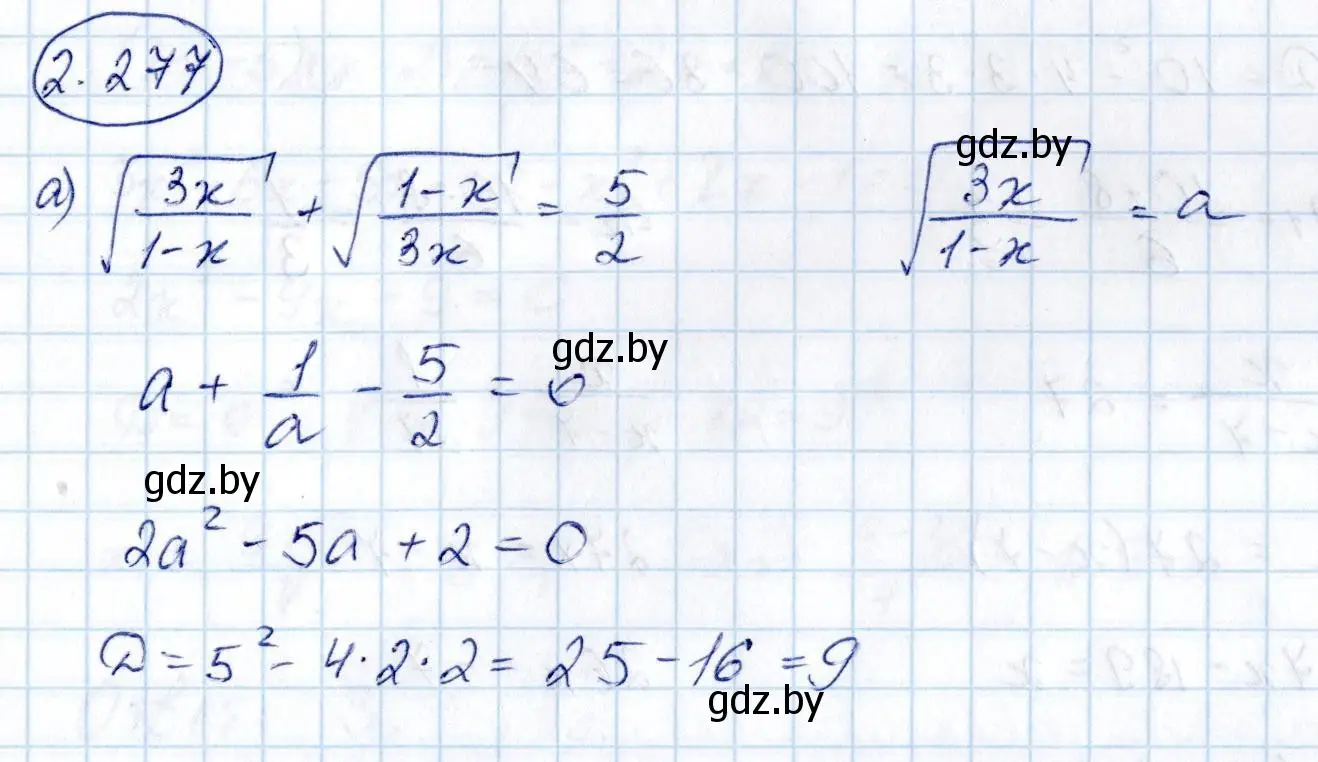 2.277
а) √(3x/(1-x)) + √((1-x)/(3x)) = 5/2 √(3x/(1-x)) = a
gdz.by
a + 1/a - 5/2 = 0
gdz.by
gdz.by
2a² - 5a + 2 = 0
D = 5² - 4·2·2 = 25 - 16 = 9
gdz.by